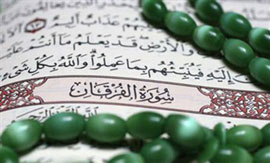 عَذَابٌ أَلِيمٌ
وَٱلْأَرْضِ قَدْ يَعْلَمُ مَآ أَنتُمْ
إِلَيْهِ فَيُنَبِّئُهُم بِمَا عَمِلُوا۟ وَٱللَّهُ بِكُلِّ شَىْءٍ
سُورَةُ الْفُرْقَانِ